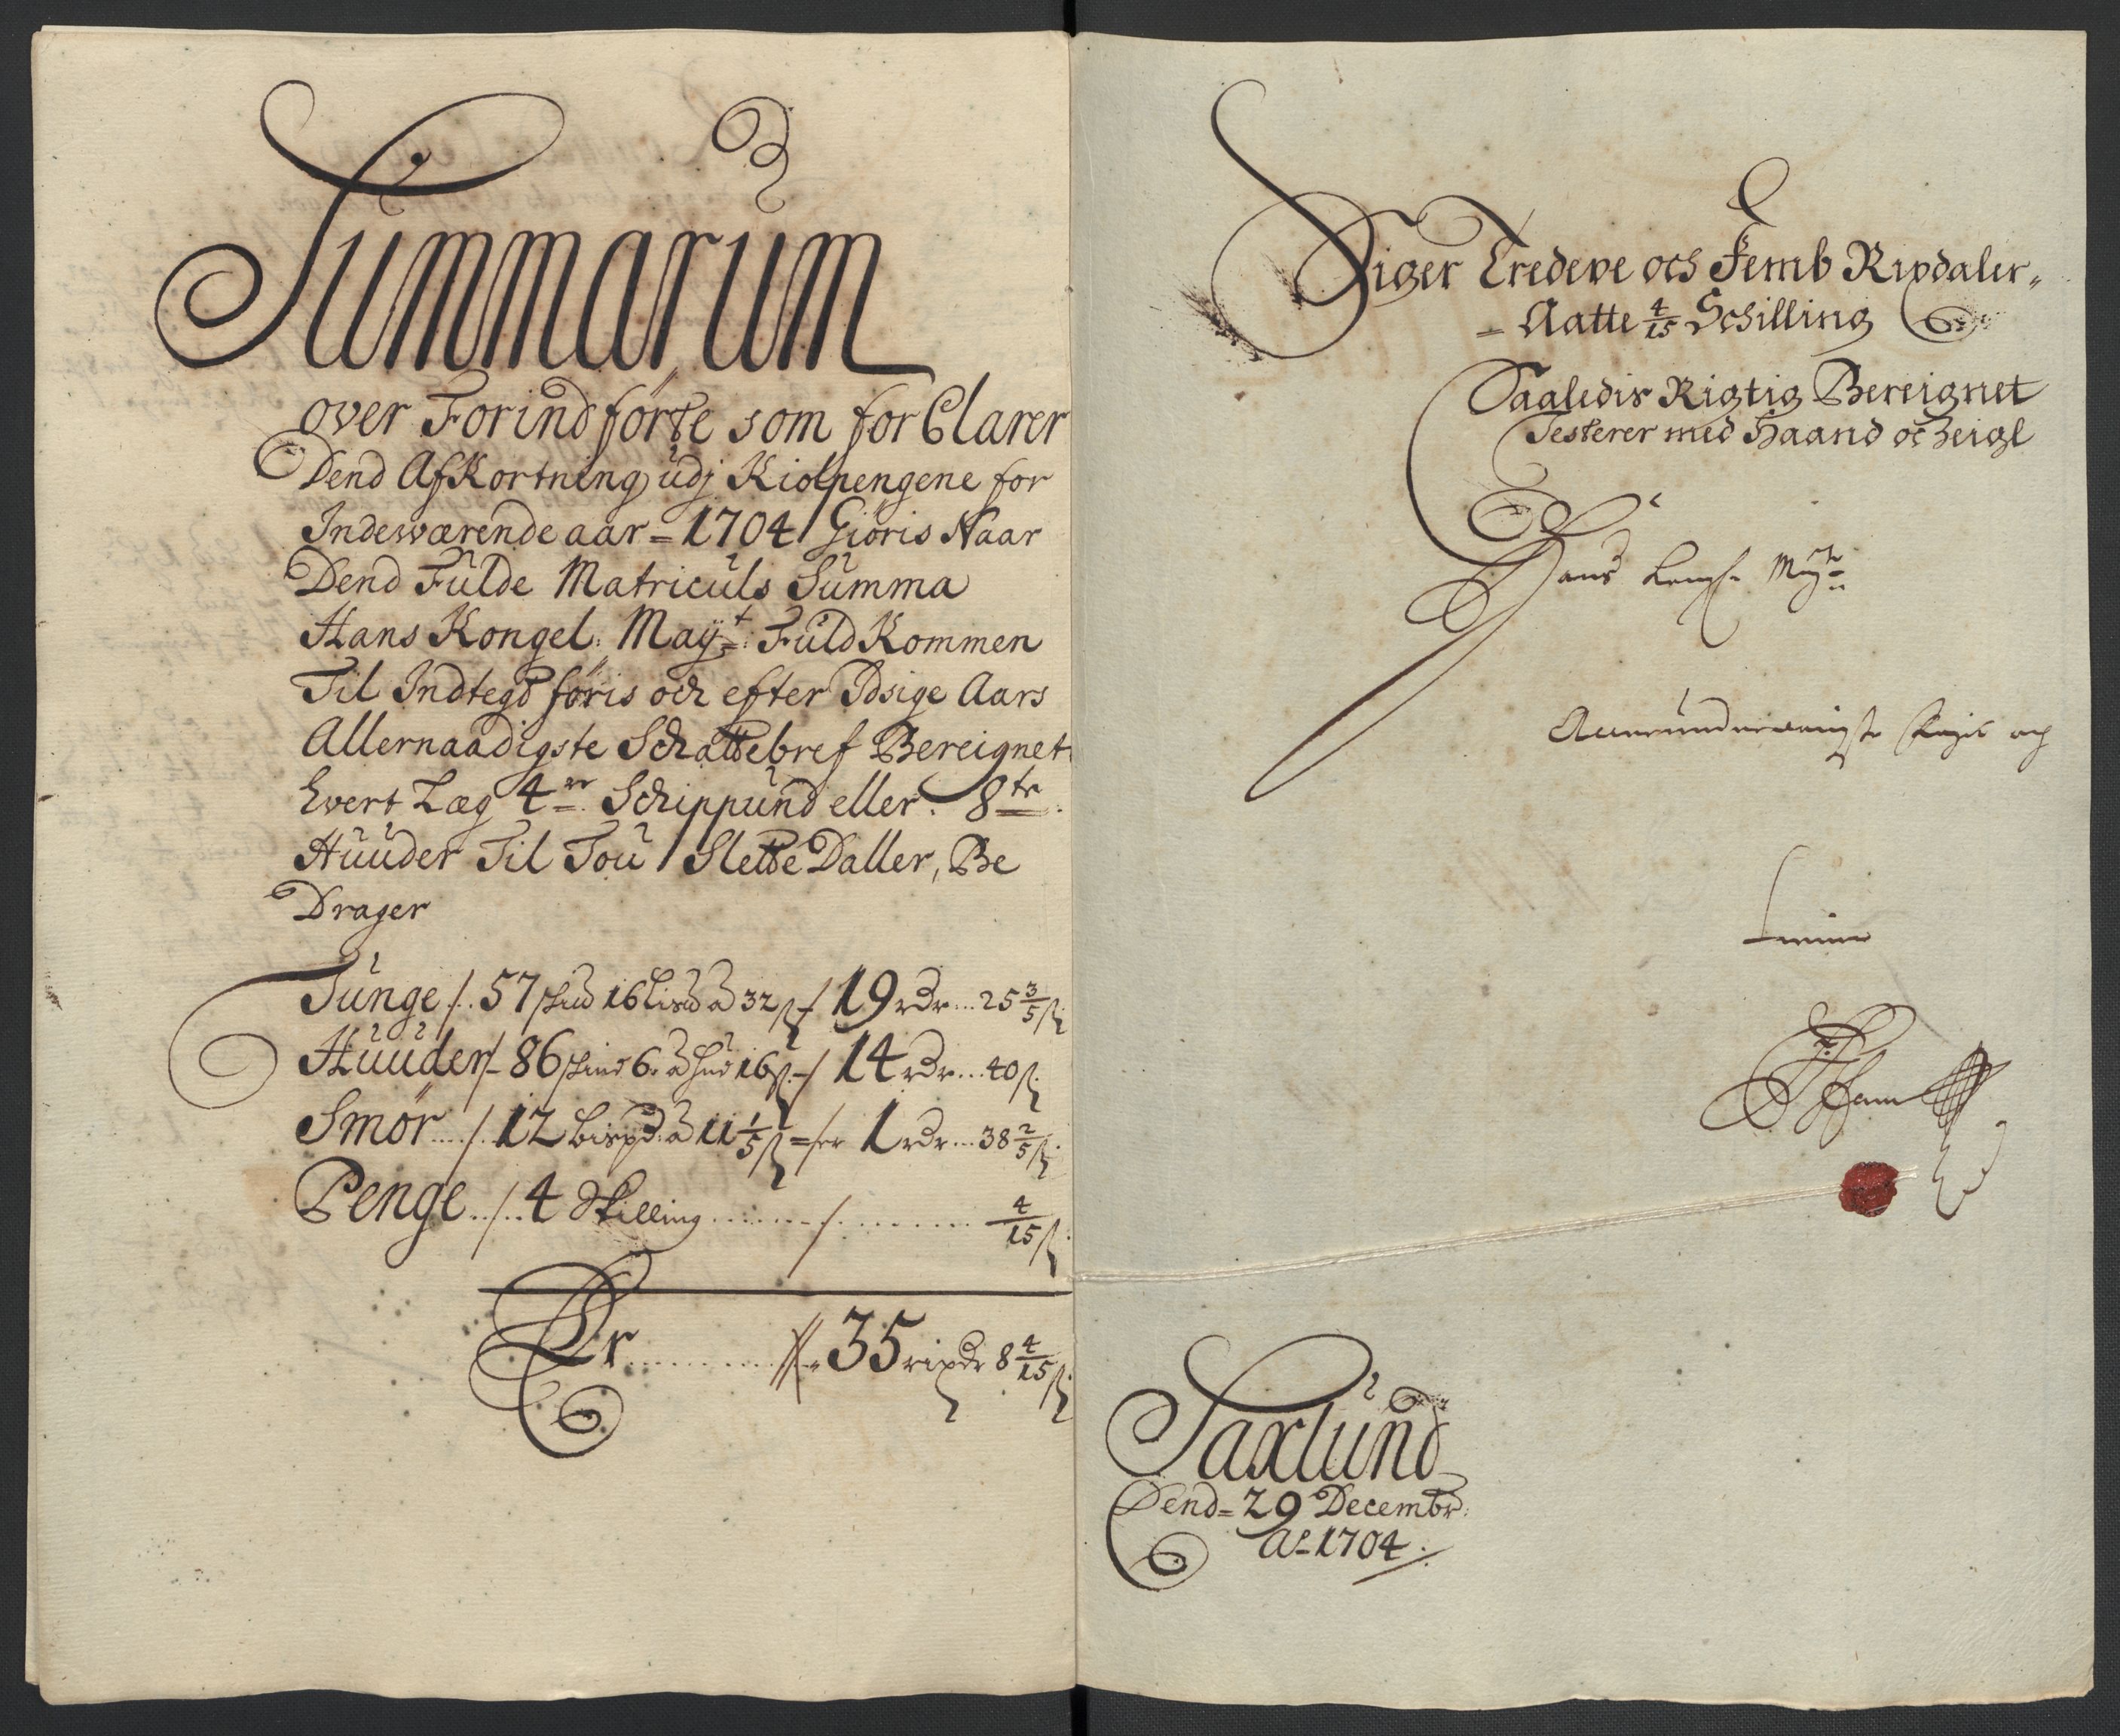 Summarum
over Forindførte som for Clarer
Dend AfKortning udj Kiolpengene for
Indeværende aar = 1704 Giøris Naar
Dend Fulde Matriculs Summa
Hans Kongel: Maÿt: FuldKommen
Til Indtegd føris och efter Idsige Aars
Allernaadigste Schattebref Bereignet
Hvert Læg 4re Schippund eller 8te
Huuder Til Tou Slette Daller, Be
Drager
Tunge /. 57 16 a 32 ß / 19 rdr ... 25 3/5 ß
Huuder /. 86 6 a 16 ß / 14 rdr ... 40 ß
Smør ... /. 12 Bispd: a 11 1/5 ß = er 1 rdr ... 38 2/5 ß
Penge ../.. 4 Skilling ........ / ........ 4/15 ß
Er ........ 35 rixdr 8 4/15 ß
Siger Tredeve och Femb Rixdaler
= Aatte 4/15 Schilling
Saaledis Rigtig Bereignet
Testerer med Haand oc Zeigl
Hans Kongl Mayts
Allerunderdanigste och
tienner
Saxlund
Dend = 29 Decembr:
Ao 1704